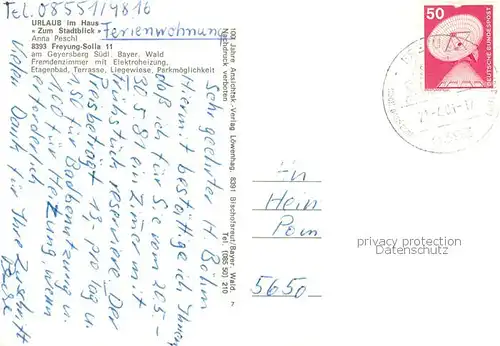 Tel. 08551/4816
URLAUB im Haus
»Zum Stadtblick« Ferienwohnung
Anna Peschl
8393 Freyung-Solla 11
am Geyersberg Südl. Bayer. Wald
Fremdenzimmer mit Elektroheizung,
Etagenbad, Terrasse, Liegewiese, Parkmöglichkeit
Sehr geehrter H. Böhm
Hiermit bestättige ich Ihnen
daß ich für Sie vom 20.5 -
30.5.81 ein Zimmer mit
Frühstück reserviere. Der
Preis beträgt 13,- pro Tag u.
1,50 für Badbenützung u.
1,00 für Heizung, wenn
erforderlich.
Vielen Dank für Ihre Zuschrift
100 Jahre Ansichtsk.-Verlag Löwenhag, 8391 Bischofsreut/Bayer. Wald.
Nachdruck verboten Tel. (085 50) 210
7
50
DEUTSCHE BUNDESPOST
5650
privacy protection
Datenschutz